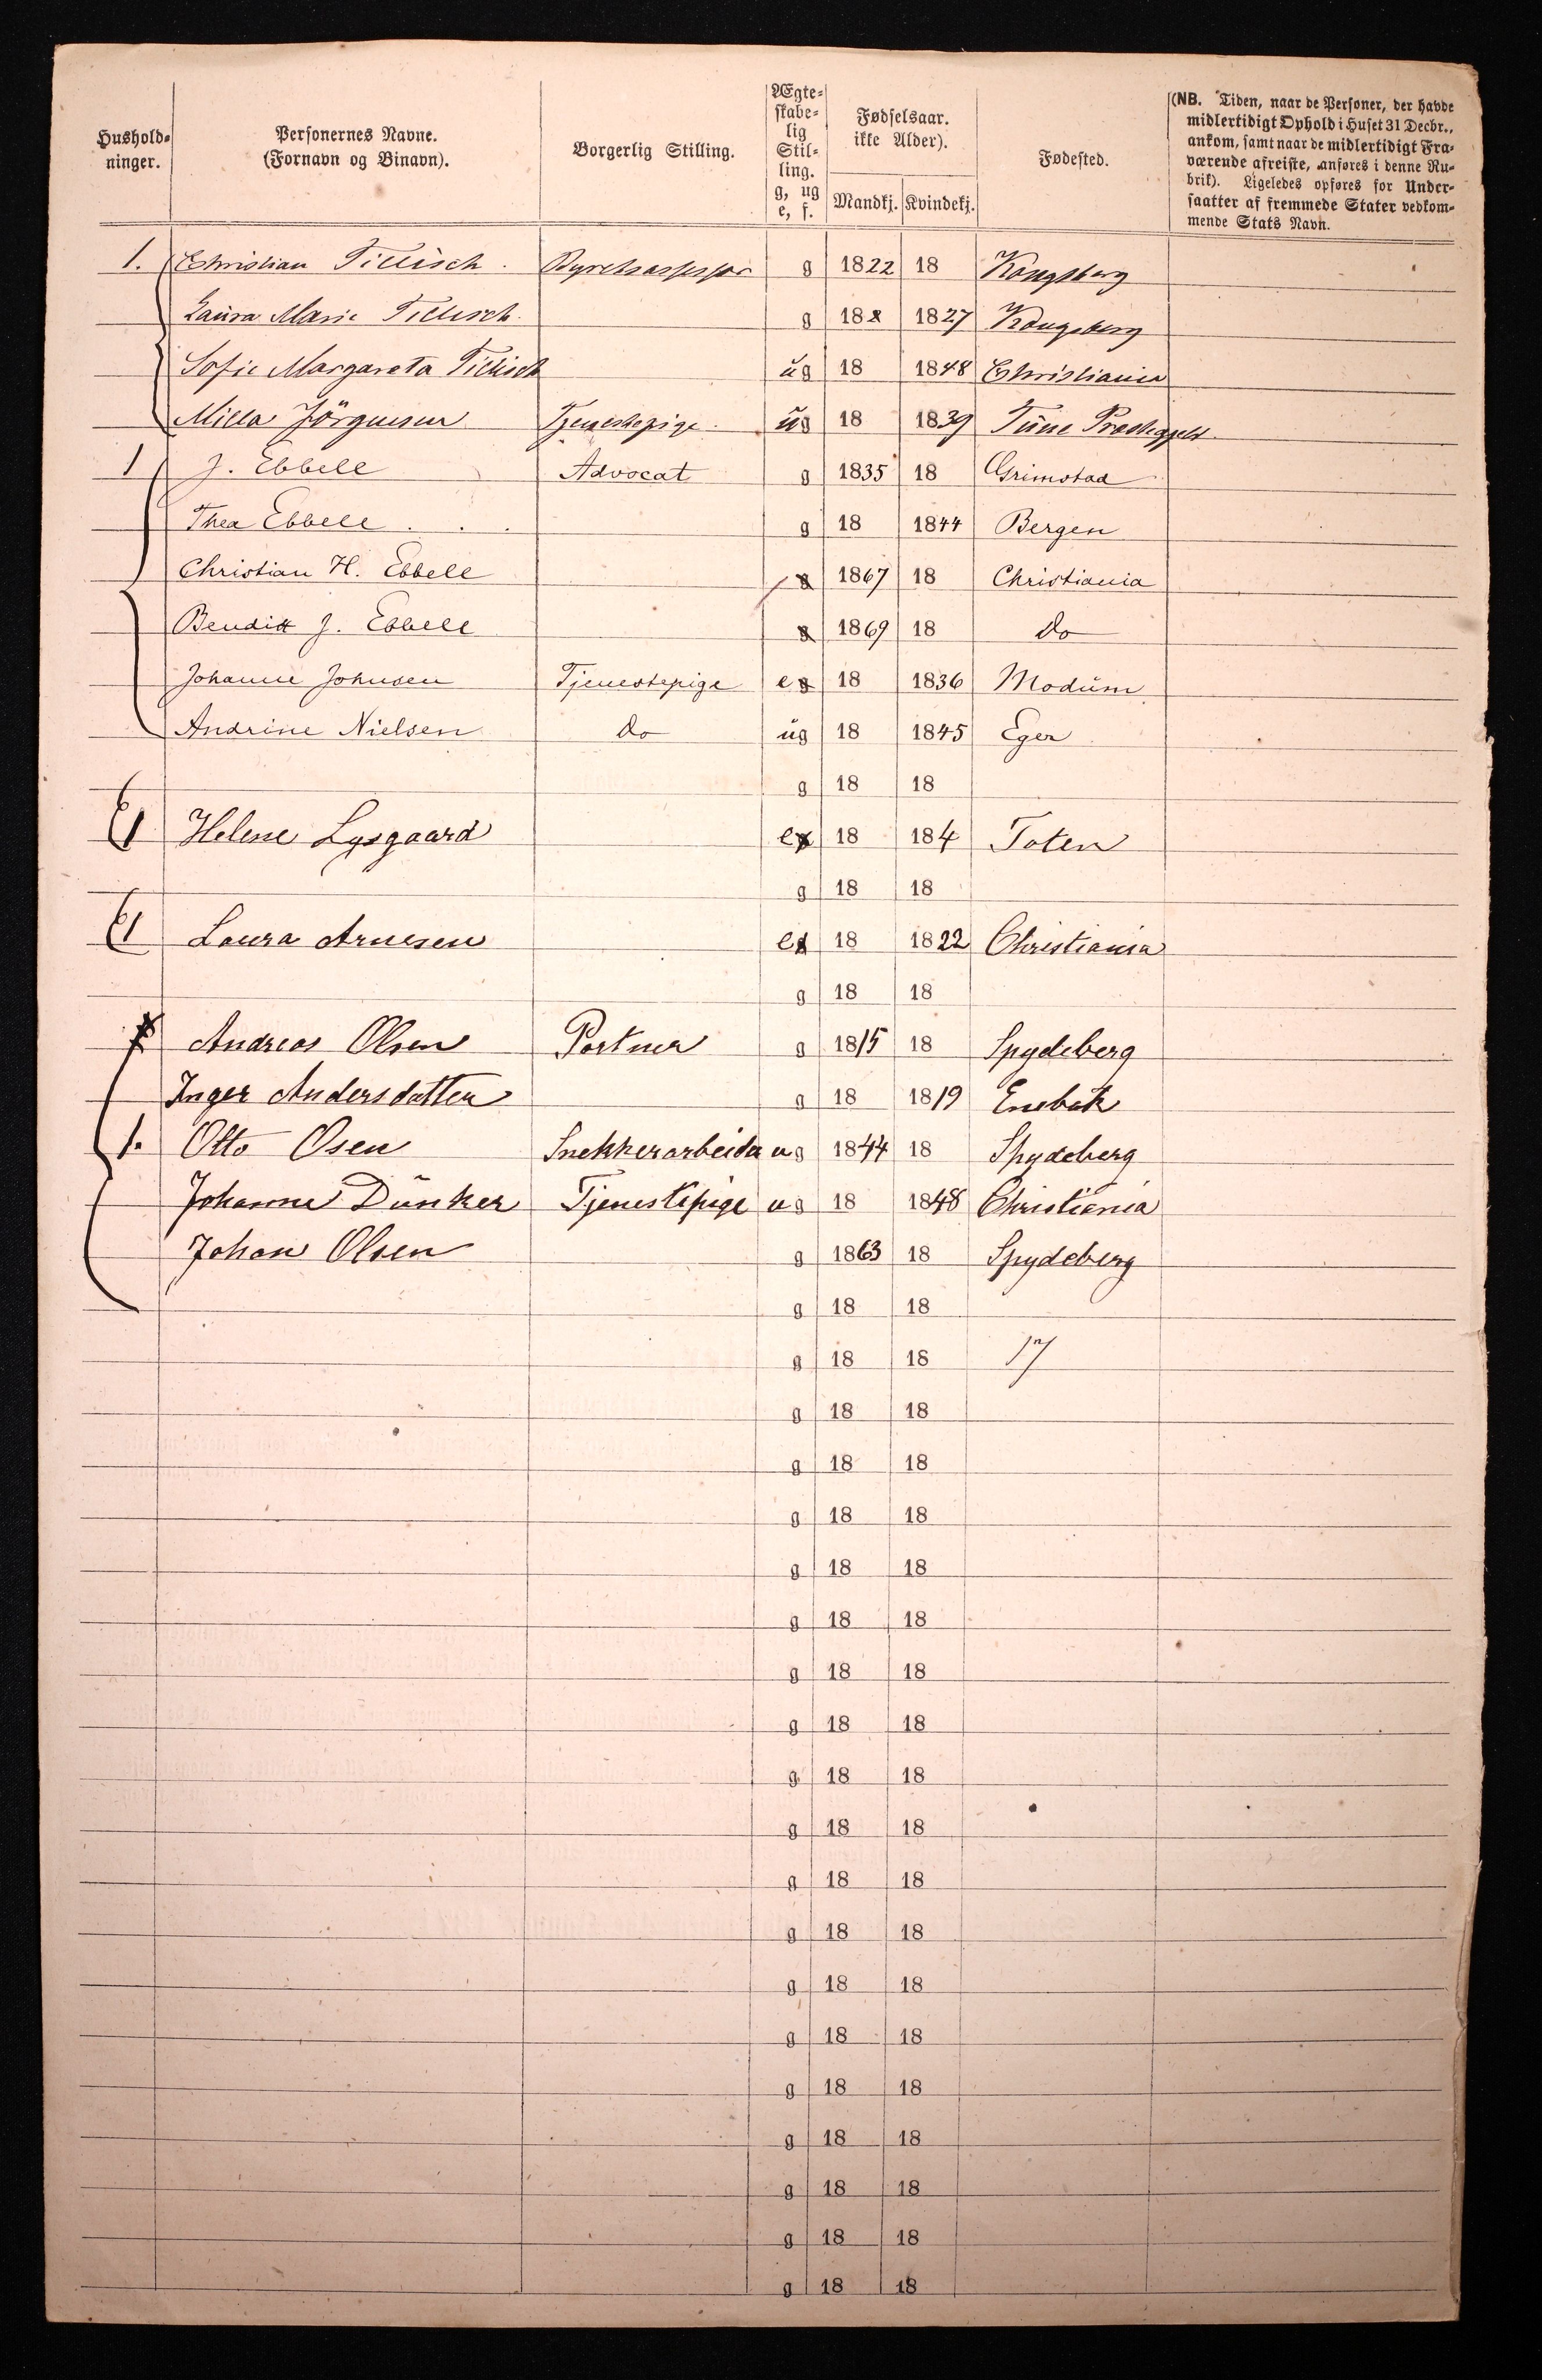 Hushold-
ninger.
Personernes Navne.
(Fornavn og Binavn).
Borgerlig Stilling.
Ægte-
skabe-
lig
Stil-
ling.
g, ug
e, f.
Fødselsaar.
ikke Alder).
Mandkj. Kvindekj.
Fødested.
(NB. Tiden, naar de Personer, der havde
midlertidigt Ophold i Huset 31 Decbr.,
ankom, samt naar de midlertidigt Fra-
værende afreiste, anføres i denne Ru-
brik). Ligeledes opføres for Under-
saatter af fremmede Stater vedkom-
mende Stats Navn.
1. Christian Tillisch Byretsassessor g 1822 18 Kongsberg
Laura Marie Tillisch g 18 1827 Kongsberg
Sofie Margareta Tillisch ug 18 1848 Christiania
Milla Jörgensen Tjenestepige ug 18 1839 Tune Præstegjeld
1 J. Ebbell Advocat g 1835 18 Grimstad
Thea Ebbell g 18 1844 Bergen
Christian H. Ebbell g 1867 18 Christiania
Bendix J. Ebbell g 1869 18 do
Johanne Johnsen Tjenestepige e g 18 1836 Modum
Andrine Nielsen do ug 18 1845 Eger
g 18 18
1 Helene Lysgaard e g 18 184 Toten
g 18 18
1 Laura Arnesen e g 18 1822 Christiania
g 18 18
Andreas Olsen Portner g 1815 18 Spydeberg
Inger Andersdatter g 18 1819 Enebak
1. Otto Osen Snekkerarbeider ug 1844 18 Spydeberg
Johanne Dunker Tjenestepige ug 18 1848 Christiania
Johan Olsen g 1863 18 Spydeberg
g 18 18
g 18 18 17
g 18 18
g 18 18
g 18 18
g 18 18
g 18 18
g 18 18
g 18 18
g 18 18
g 18 18
g 18 18
g 18 18
g 18 18
g 18 18
g 18 18
g 18 18
g 18 18
g 18 18
g 18 18